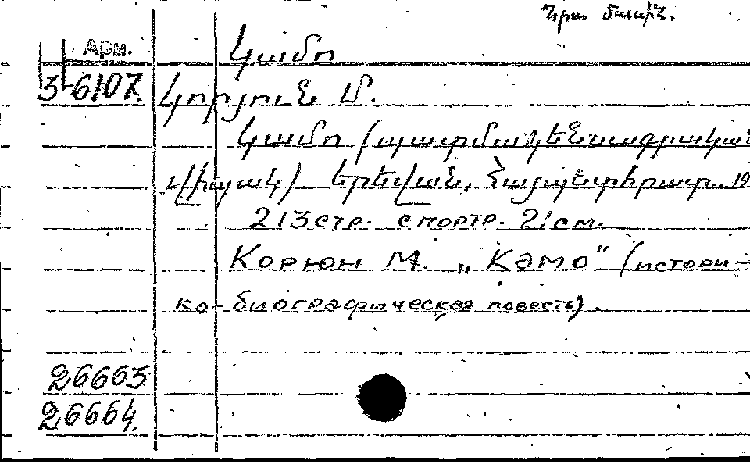 Նրա մասին.
Арм.
Կամո
3-6107.
Կորյուն Մ.
Կամո (պատմակենսագրական
վիպակ) Երևան, Հայպետհրատ. 19
213 стр. с портр. 21 см.
Корюн М. „Камо“ (истори-
ко-биографическая повесть).
26663
26664.